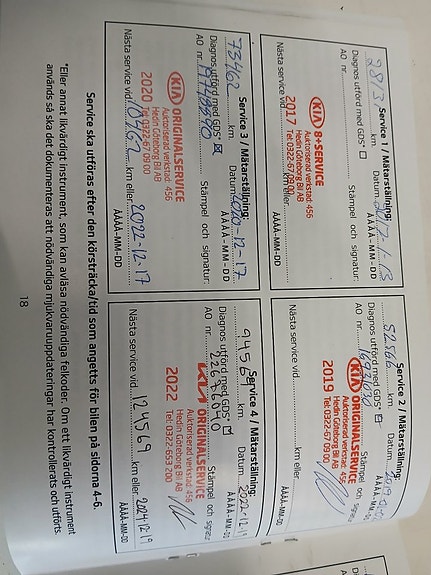 Service 1 / Mätarställning:
km. Datum
Diagnos utförd med GDS* ÅÅÅÅ-MM-DD
AO nr. Stämpel och signatur:
KIA 8+SERVICE
Auktoriserad verkstad: 456
Hedin Göteborg Bil AB
2017 Tel: 0322-67 09 00
Nästa service vid km eller
ÅÅÅÅ-MM-DD
Service 2 / Mätarställning:
52866 km. Datum
Diagnos utförd med GDS*
AO nr. Stämpel och
KIA ORIGINALSERVICE
Auktoriserad verkstad: 456
Hedin Göteborg Bil AB
2019 Tel: 0322-67 09 00
Nästa service vid km eller
ÅÅÅÅ-MM-DD
Service 3 / Mätarställning:
73462 km. Datum 2020-12-17
Diagnos utförd med GDS* ÅÅÅÅ-MM-DD
AO nr. Stämpel och signatur:
KIA ORIGINALSERVICE
Auktoriserad verkstad: 456
Hedin Göteborg Bil AB
2020 Tel: 0322-67 09 00
Nästa service vid km eller 2022-12-17
ÅÅÅÅ-MM-DD
Service 4 / Mätarställning:
94569 km. Datum 2022-12-19
Diagnos utförd med GDS* ÅÅÅÅ-MM-DD
AO nr. Stämpel och
KIA ORIGINALSERVICE
Auktoriserad verkstad: 456
Hedin Göteborg Bil AB
2022 Tel: 0322-653 200
Nästa service vid 124569 km eller 2024-12-19
ÅÅÅÅ-MM-DD
Service ska utföras efter den körsträcka/tid som angetts för bilen på sidorna 4–6.
*Eller annat likvärdigt instrument, som kan avläsa nödvändiga felkoder. Om ett likvärdigt instrument
används så ska det dokumenteras att nödvändiga mjukvaruuppdateringar har kontrollerats och utförts.
18